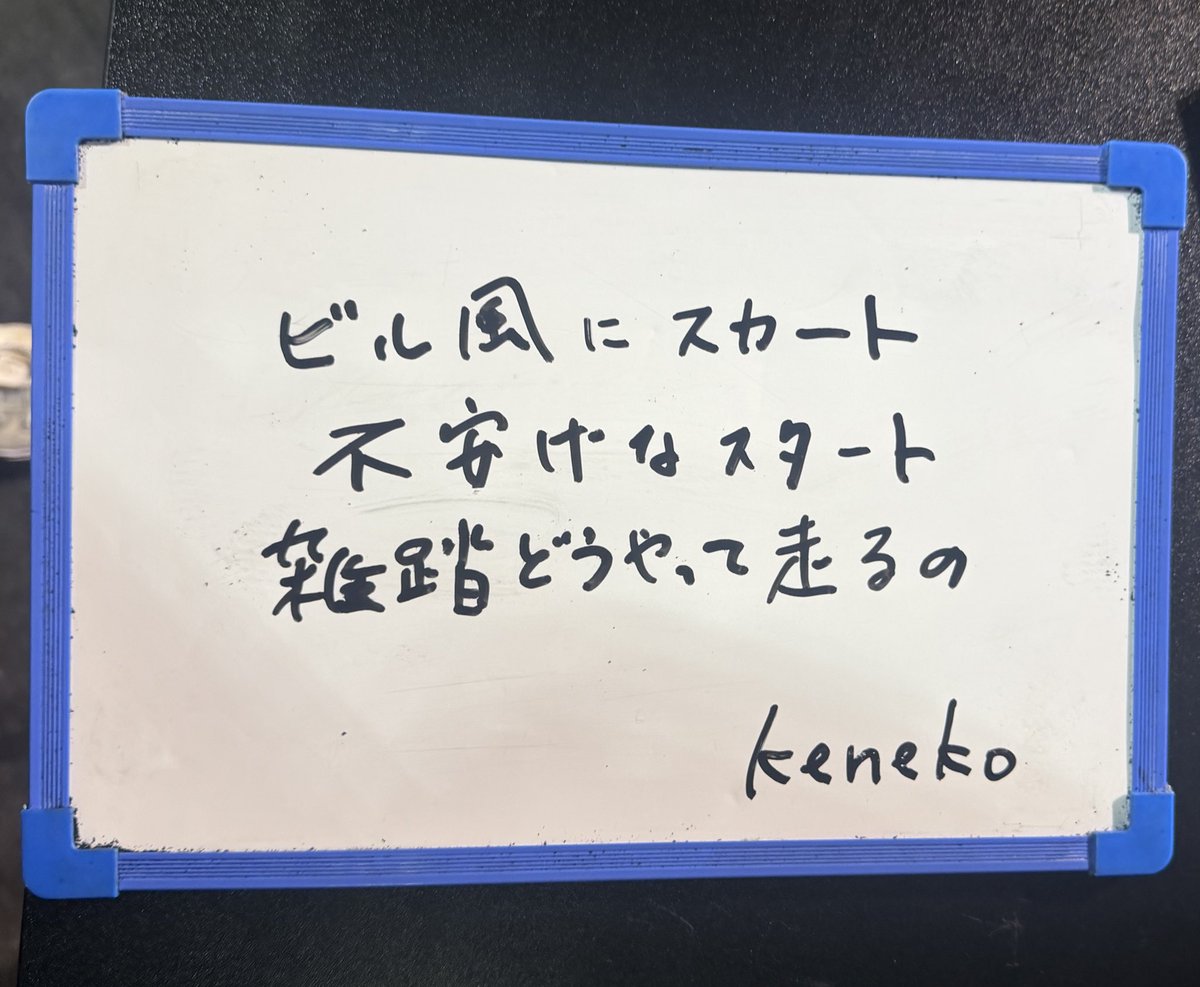 ビル風にスカート
不安げなスタート
雑踏どうやって走るの
keneko